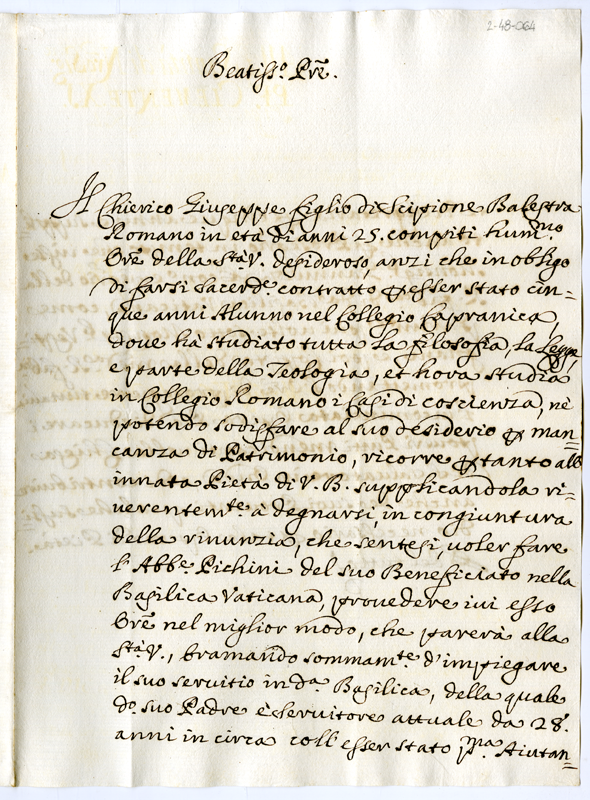 2-48-064
Beatiss.o P̃re.
Il Chierico Giuseppe figlio di Scipione Balestra
Romano in età di anni 25. compiti hum.mo
Ore͂ della S.tà V. desideroso, anzi che in obligo
di farsi sacerd.e contratto ꝑ esser stato cin=
que anni Alunno nel Collegio Capranica,
dove hà studiato tutta la filosofia, la Legge,
e parte della Teologia, et hora studia
in Collegio Romano i Casi di coscienza, nè
potendo sodisfare al suo desiderio ꝑ man=
canza di Patrimonio, ricorre ꝑtanto all'
innata Pietà di V. B. supplicandola ri=
verentem.te à degnarsi, in congiuntura
della rinunzia, che sentesi, voler fare
l'Abb.e Pichini del suo Beneficiato nella
Basilica Vaticana, provedere ivi esso
Ore͂ nel miglior modo, che parerà alla
S.tà V., bramando sommam.te d'impiegare
il suo servitio in d.a Basilica, della quale
d.o suo Padre è servitore attuale da 28.
anni in circa coll'esser stato p.ma Aiutan=